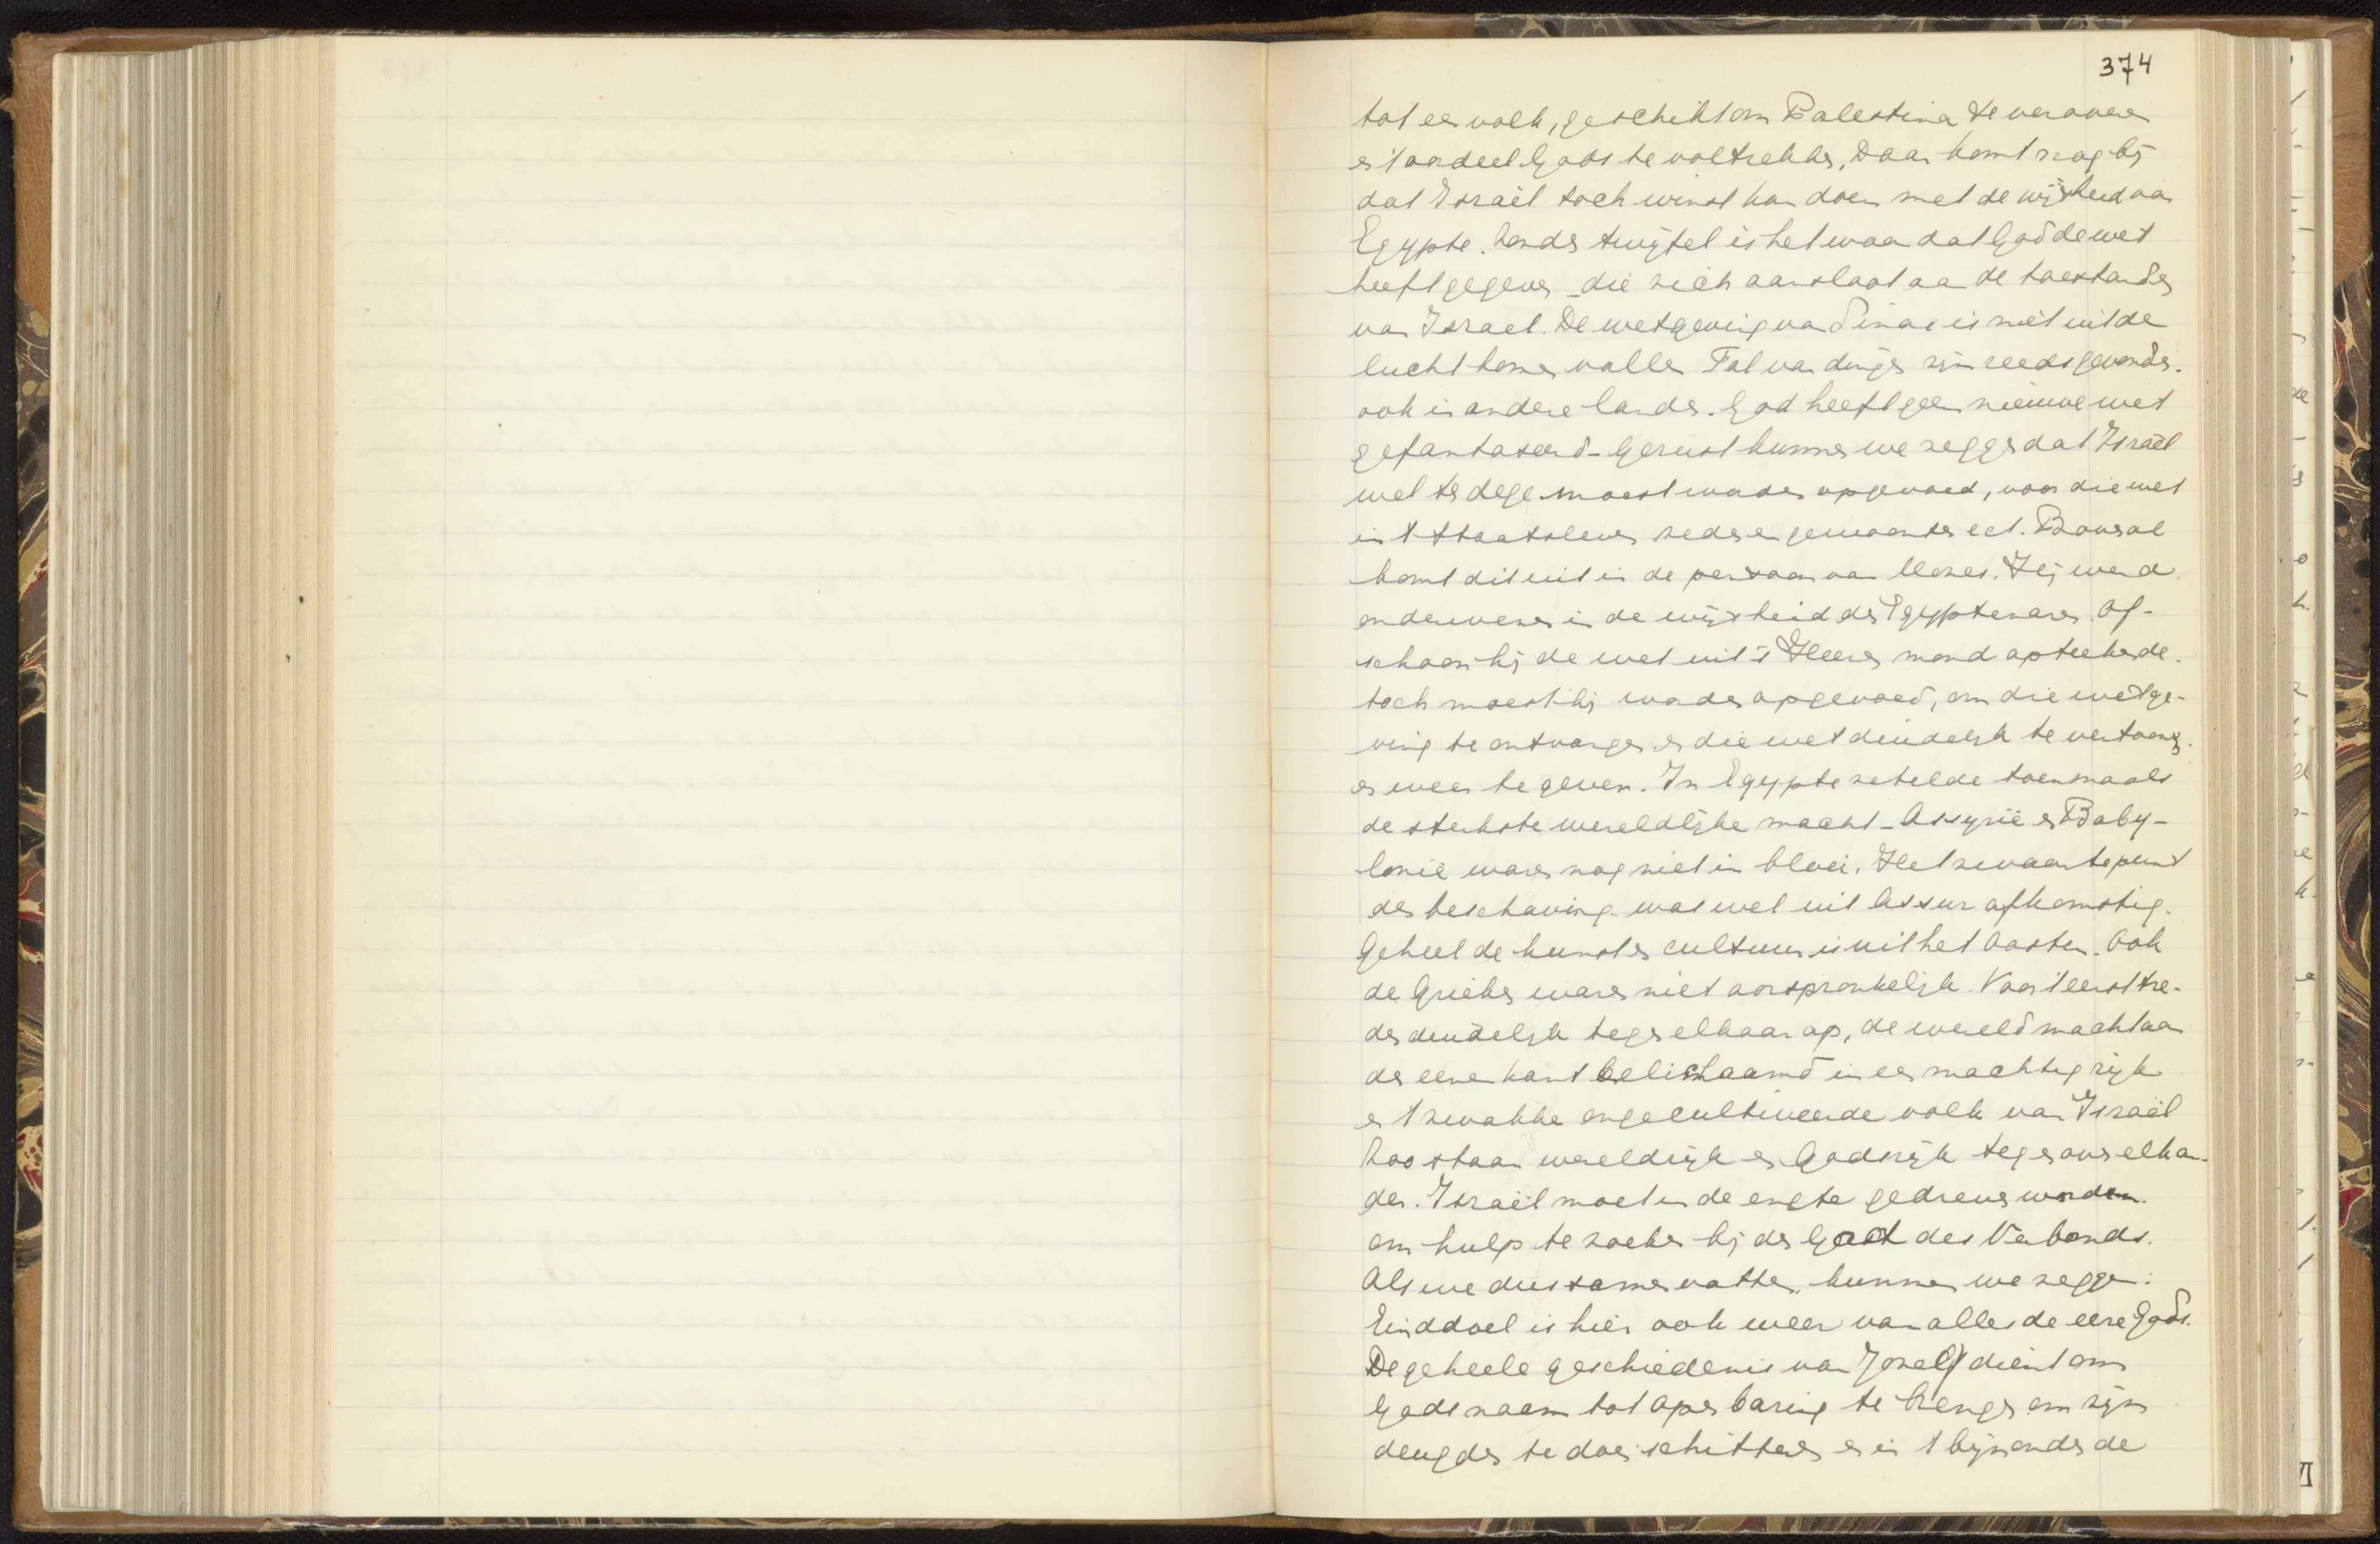 374
tot een volk, geschikt om Palestina te veroveren
en 't oordeel Gods te voltrekken. Daar komt nog bij
dat Israël toch winst kan doen met de wijsheid van
Egypte. Zonder twijfel is het waar dat God de wet
heeft gegeven die zich aansloot aan de toestanden
van Israel. De wetgeving van Sinai is niet uit de
lucht komen vallen Tal van dingen zijn reeds gevonden.
ook in andere landen. God heeft geen nieuwe wet
gefantaseerd - Gerust kunnen we zeggen dat Israël
wel ter dege moest worden opgevoed, voor die wet
in 't staatsleven zeden en gewoonten ect. Bovenal
komt dit uit in de persoon van Mozes. Hij werd
onderwezen in de wijsheid der Egyptenaren. Of-
schoon hij de wet uit 's Heeren mond opteekende.
toch moest hij worden opgevoed, om die wetge-
ving te ontvangen en die wet duidelijk te vertoonen.
en weer te geven. In Egypte zetelde toenmaals
de sterkste wereldlijke macht - Assyrië en Baby-
lonië waren nog niet in bloei. Het zwaartepunt
der beschaving was wel uit Assur afkomstig.
Geheel de kunst en cultuur is uit het Oosten. Ook
de Grieken waren niet oorspronkelijk. Voor 't eerst tre-
den duidelijk tegen elkaar op, de wereldmacht aan
de eene kant belichaamd in een machtig rijk
en 't zwakke ongecultiveerde volk van Israël
Zoo staan wereldrijk en Godsrijk tegenover elkan-
der. Israël moet in de engte gedreven worden.
om hulp te zoeken bij den God des Verbonds.
Als we dus samenvatten, kunnen we zeggen:
Einddoel is hier ook weer van alles de eere Gods.
De geheele geschiedenis van Jozef dient om
Gods naam tot openbaring te brengen om zijn
deugden te doen schitteren en in 't bijzonder de